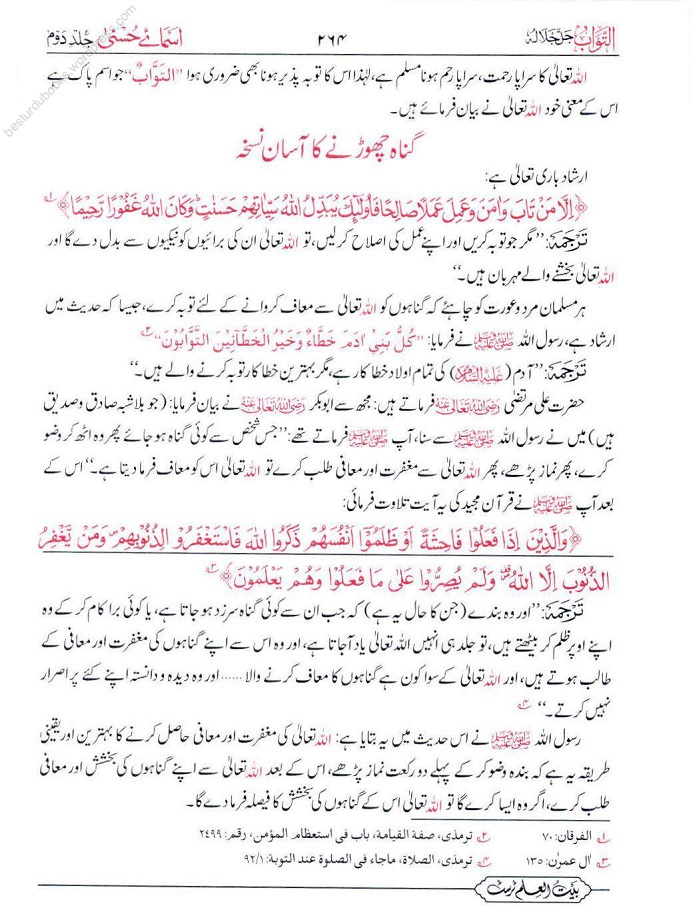 التواب جل جلالہ ۲۶۴ اسمائے حسنیٰ جلد دوم
اللہ تعالیٰ کا سراپا رحمت، سراپا رحم ہونا مسلم ہے، لہٰذا اس کا توبہ پذیر ہونا بھی ضروری ہوا ”التَّوَّابُ“ جو اسم پاک ہے
اس کے معنی خود اللہ تعالیٰ نے بیان فرمائے ہیں۔
گناہ چھوڑنے کا آسان نسخہ
ارشاد باری تعالیٰ ہے:
﴿اِلَّا مَنْ تَابَ وَاٰمَنَ وَعَمِلَ عَمَلًا صَالِحًا فَاُولٰٓئِكَ یُبَدِّلُ اللّٰهُ سَیِّاٰتِهِمْ حَسَنٰتٍ وَكَانَ اللّٰهُ غَفُوْرًا رَّحِیْمًا﴾ ۱
تَرجَمَہ: ”مگر جو توبہ کریں اور اپنے عمل کی اصلاح کر لیں، تو اللہ تعالیٰ ان کی برائیوں کو نیکیوں سے بدل دے گا اور
اللہ تعالیٰ بخشنے والے مہربان ہیں۔“
ہر مسلمان مرد و عورت کو چاہئے کہ گناہوں کو اللہ تعالیٰ سے معاف کروانے کے لئے توبہ کرے، جیسا کہ حدیث میں
ارشاد ہے، رسول اللہ ﷺ نے فرمایا: ”كُلُّ بَنِيْ اٰدَمَ خَطَّاءٌ وَخَيْرُ الْخَطَّائِيْنَ التَّوَّابُوْنَ“ ۲
تَرجَمَہ: ”آدم (عَلَیْہِ السَّلَام) کی تمام اولاد خطا کار ہے، مگر بہترین خطا کار توبہ کرنے والے ہیں۔“
حضرت علی مرتضیٰ رضی اللہ تعالیٰ عنہ فرماتے ہیں: مجھ سے ابوبکر رضی اللہ تعالیٰ عنہ نے بیان فرمایا: (جو بلاشبہ صادق و صدیق
ہیں) میں نے رسول اللہ ﷺ سے سنا، آپ ﷺ فرماتے تھے: ”جس شخص سے کوئی گناہ ہو جائے پھر وہ اٹھ کر وضو
کرے، پھر نماز پڑھے، پھر اللہ تعالیٰ سے مغفرت اور معافی طلب کرے تو اللہ تعالیٰ اس کو معاف فرما دیتا ہے۔“ اس کے
بعد آپ ﷺ نے قرآن مجید کی یہ آیت تلاوت فرمائی:
﴿وَالَّذِیْنَ اِذَا فَعَلُوْا فَاحِشَةً اَوْ ظَلَمُوْٓا اَنْفُسَهُمْ ذَكَرُوا اللّٰهَ فَاسْتَغْفَرُوْا لِذُنُوْبِهِمْ وَمَنْ یَّغْفِرُ
الذُّنُوْبَ اِلَّا اللّٰهُ وَلَمْ یُصِرُّوْا عَلٰى مَا فَعَلُوْا وَهُمْ یَعْلَمُوْنَ﴾ ۳
تَرجَمَہ: ”اور وہ بندے (جن کا حال یہ ہے) کہ جب ان سے کوئی گناہ سرزد ہو جاتا ہے، یا کوئی برا کام کر کے وہ
اپنے اوپر ظلم کر بیٹھتے ہیں، تو جلد ہی انہیں اللہ تعالیٰ یاد آجاتا ہے، اور وہ اس سے اپنے گناہوں کی مغفرت اور معافی کے
طالب ہوتے ہیں، اور اللہ تعالیٰ کے سوا کون ہے گناہوں کا معاف کرنے والا …… اور وہ دیدہ و دانستہ اپنے کئے پر اصرار
نہیں کرتے۔“ ۴
رسول اللہ ﷺ نے اس حدیث میں یہ بتایا ہے: اللہ تعالیٰ کی مغفرت اور معافی حاصل کرنے کا بہترین اور یقینی
طریقہ یہ ہے کہ بندہ وضو کر کے پہلے دو رکعت نماز پڑھے، اس کے بعد اللہ تعالیٰ سے اپنے گناہوں کی بخشش اور معافی
طلب کرے، اگر وہ ایسا کرے گا تو اللہ تعالیٰ اس کے گناہوں کی بخشش کا فیصلہ فرما دے گا۔
۱ الفرقان: ۷۰ ۲ ترمذی، صفة القیامة، باب فی استعظام المؤمن، رقم: ۲۴۹۹
۳ اٰل عمرٰن: ۱۳۵ ۴ ترمذی، الصلاة، ماجاء فی الصلوة عند التوبة: ۹۲/۱
بیت العلم ٹرسٹ
besturdubooks.wordpress.com